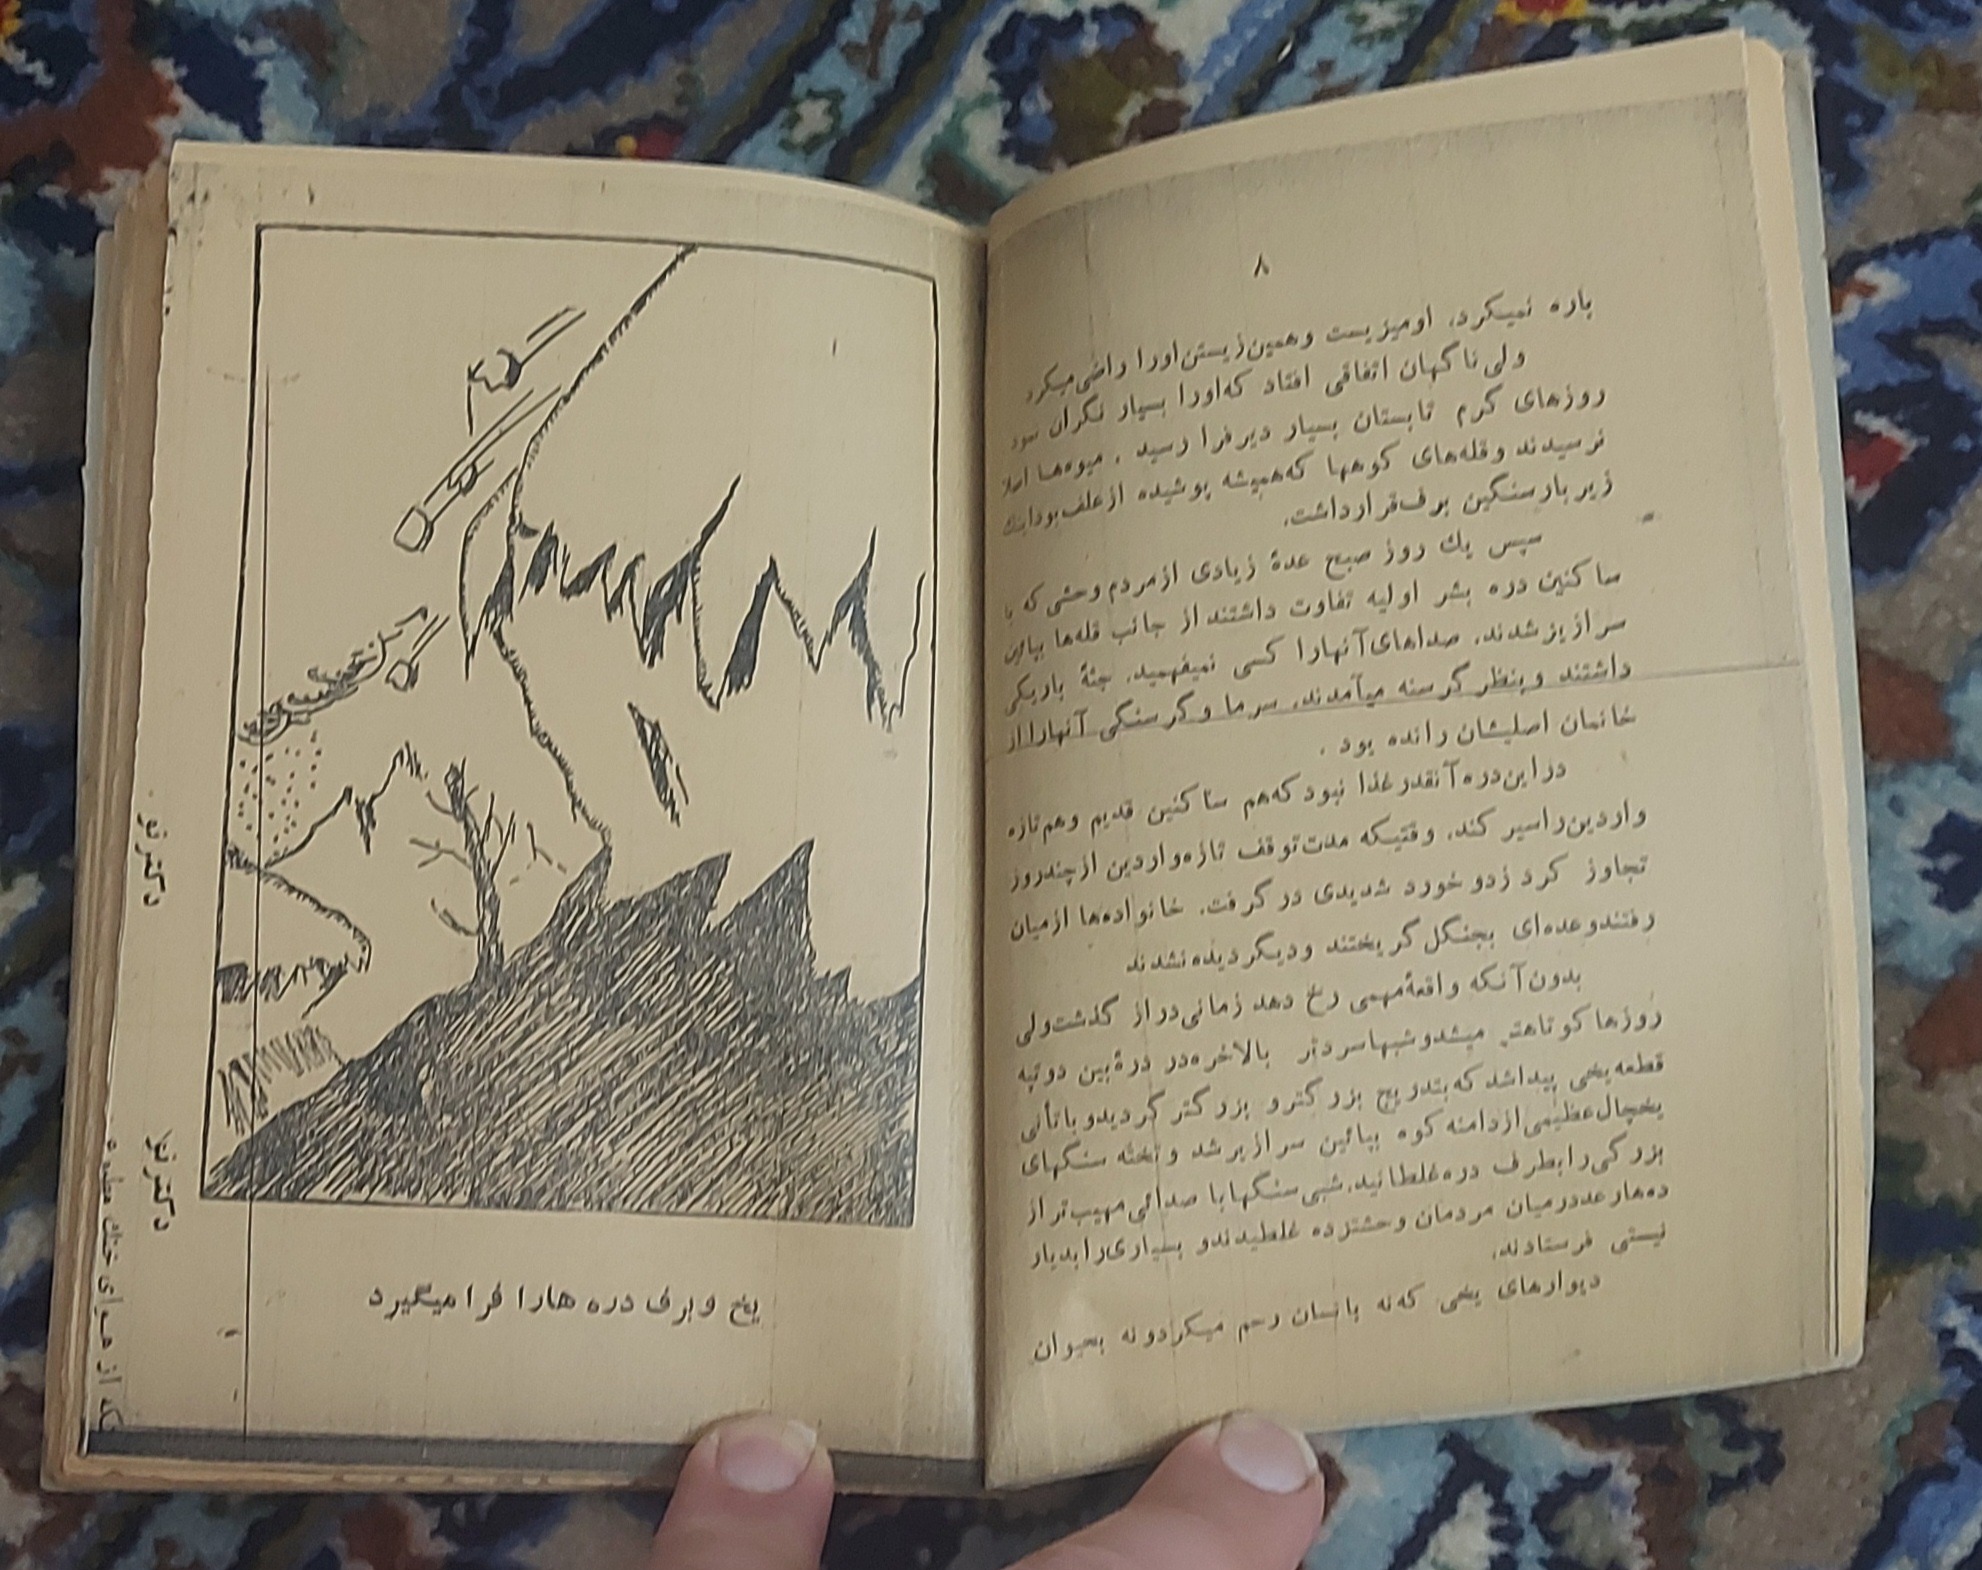 ۸
باره نمیکرد. اومیزیست وهمین‌زیستن‌اورا راضی‌میکرد
ولی ناگهان اتفاقی افتاد که‌اورا بسیار نگران نمود
روزهای گرم تابستان بسیار دیر فرا رسید . میوه‌ها اصلا
نرسیدند وقله‌های کوهها که‌همیشه پوشیده ازعلف‌بوداینك
زیر بارسنگین برف‌قرارداشت.
سپس یك روز صبح عدهٔ زیادی ازمردم وحشی‌که با
ساکنین دره بشر اولیه تفاوت داشتند از جانب قله‌ها بپائین
سرازیز شدند. صداهای‌آنهارا کسی نمیفهمید. جثهٔ باریکی
داشتند وبنظر گرسنه میآمدند. سرما وگرسنگی آنهارا از
خانمان اصلیشان رانده بود .
دراین‌دره‌آنقدرغذا نبود که‌هم ساکنین قدیم وهم‌تازه
واردین‌راسیر کند. وقتیکه مدت‌توقف تازه‌واردین ازچندروز
تجاوز کرد زدو خورد شدیدی در گرفت. خانواده‌ها ازمیان
رفتندوعده‌ای بجنگل گریختند ودیگردیده‌نشدند
بدون‌آنکه واقعهٔ‌مهمی رخ دهد زمانی‌دراز گذشت‌ولی
روزها کوتاهتر میشدوشبهاسردتر بالاخره‌در درهٔ‌بین دوتپه
قطعه‌یخی پیداشد که‌بتدریج بزرگترو بزرگتر گردیدو باتأنی
یخچال‌عظیمی‌ازدامنه کوه بپائین سرازیر شد وتخته سنگهای
بزرگی‌رابطرف دره‌غلطانید.شبی‌سنگهابا صدائی‌مهیب‌تراز
ده‌هارعددرمیان مردمان وحشتزده غلطیدندو بسیاری‌رابدیار
نیستی فرستادند.
دیوارهای یخی که‌نه بانسان رحم میکردونه بحیوان
یخ وبرف دره هارا فرا میگیرد
دکترنو
از هوای خنك